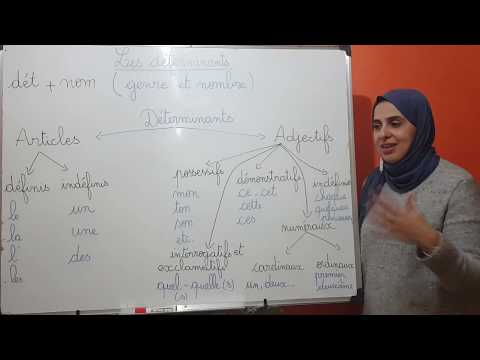 Les déterminants
dét + nom ( genre et nombre )
Déterminants
Articles
Adjectifs
définis
le
la
l'
les
indéfinis
un
une
des
possessifs
mon
ton
son
etc.
démonstratifs
ce - cet
cette
ces
indéfinis
chaque
quelques
plusieurs
numéraux
interrogatifs et
exclamatifs
quel - quelle (s)
(s)
cardinaux
un, deux...
ordinaux
premier
deuxième